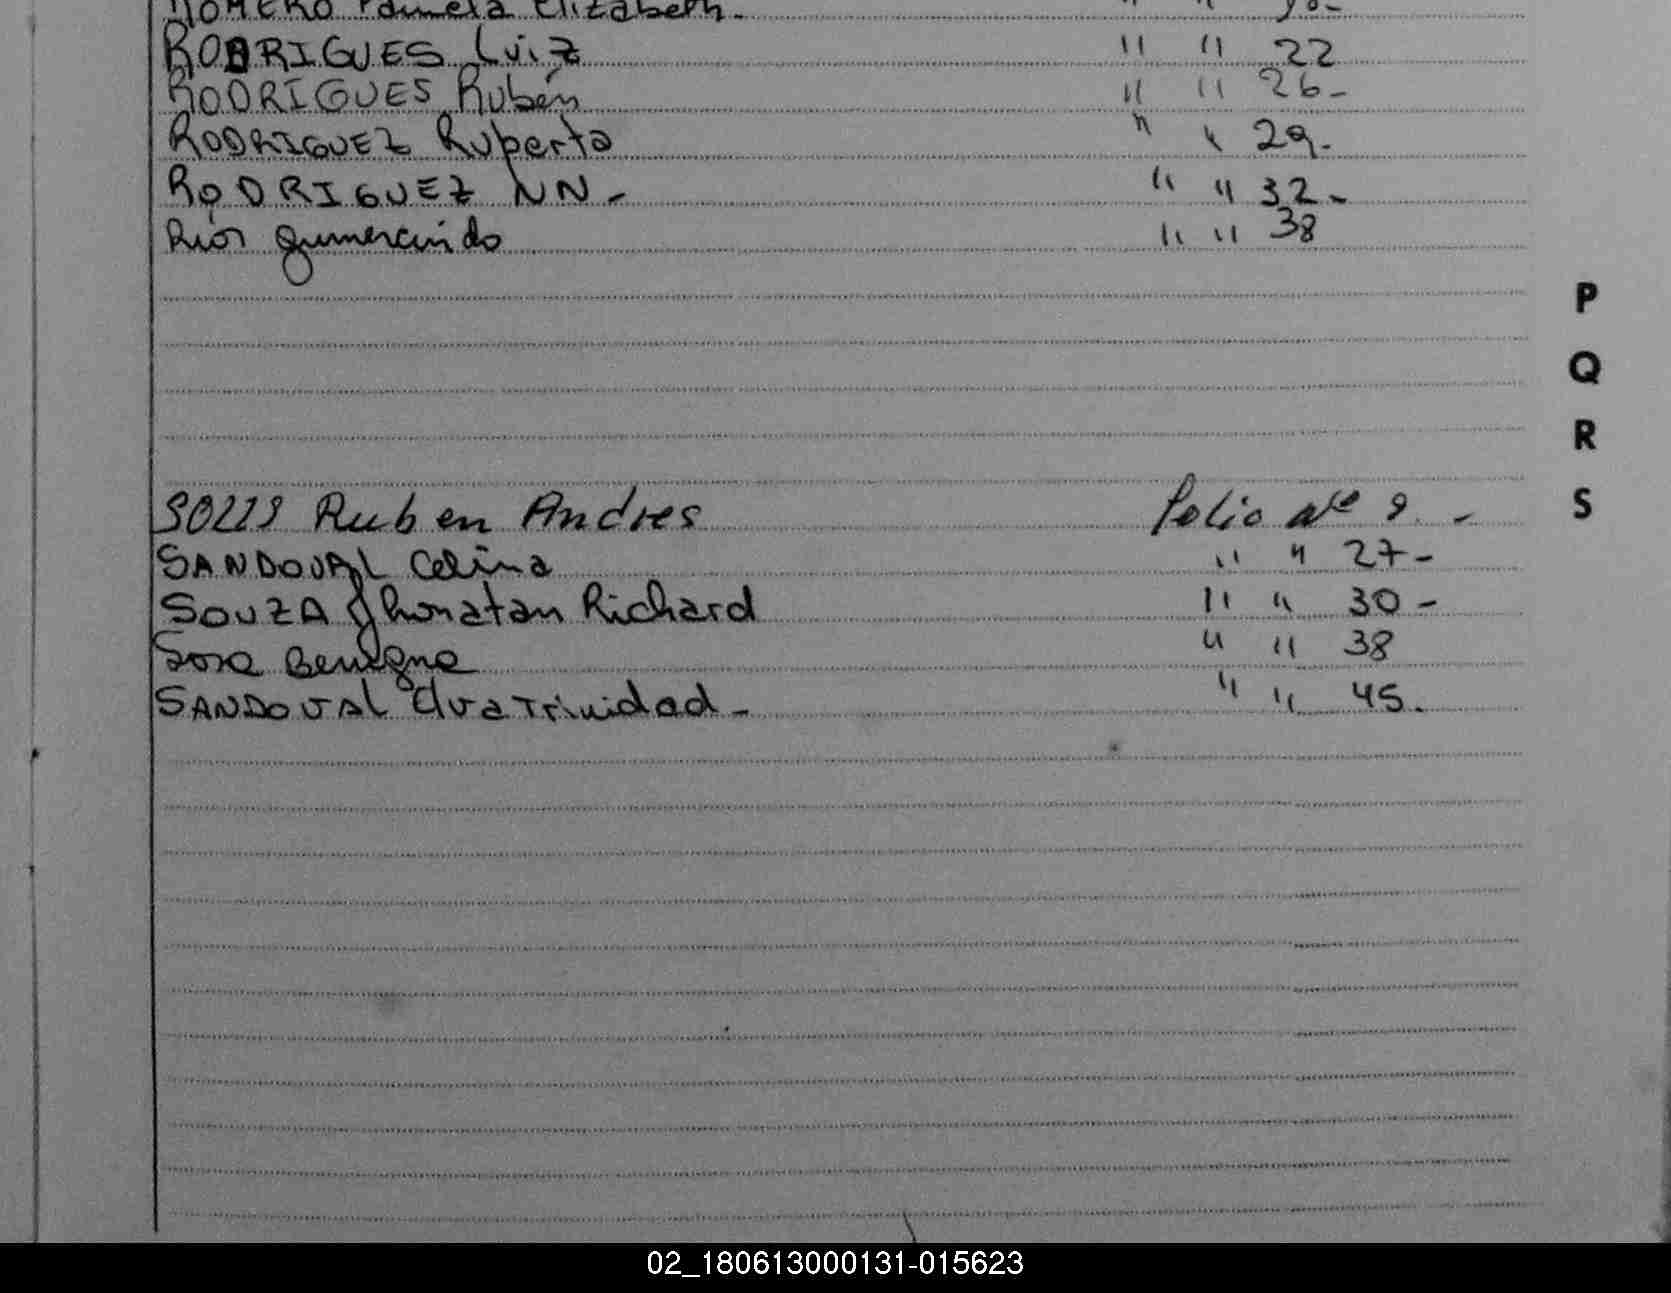 ROMERO Pamela Elizabeth.
RODRIGUES Luiz " " 22
RODRIGUES Rubén " " 26-
RODRIGUEZ Ruperto " " 29.
RODRIGUEZ NN- " " 32-
Rios Gumercindo " " 38
P
Q
R
S
SOLIS Ruben Andres folio Nº 9. -
SANDOVAL Celina " " 27-
SOUZA Jhonatan Richard " " 30-
Sosa Benigna " " 38
SANDOVAL Elva Trinidad- " " 45.
02_180613000131-015623